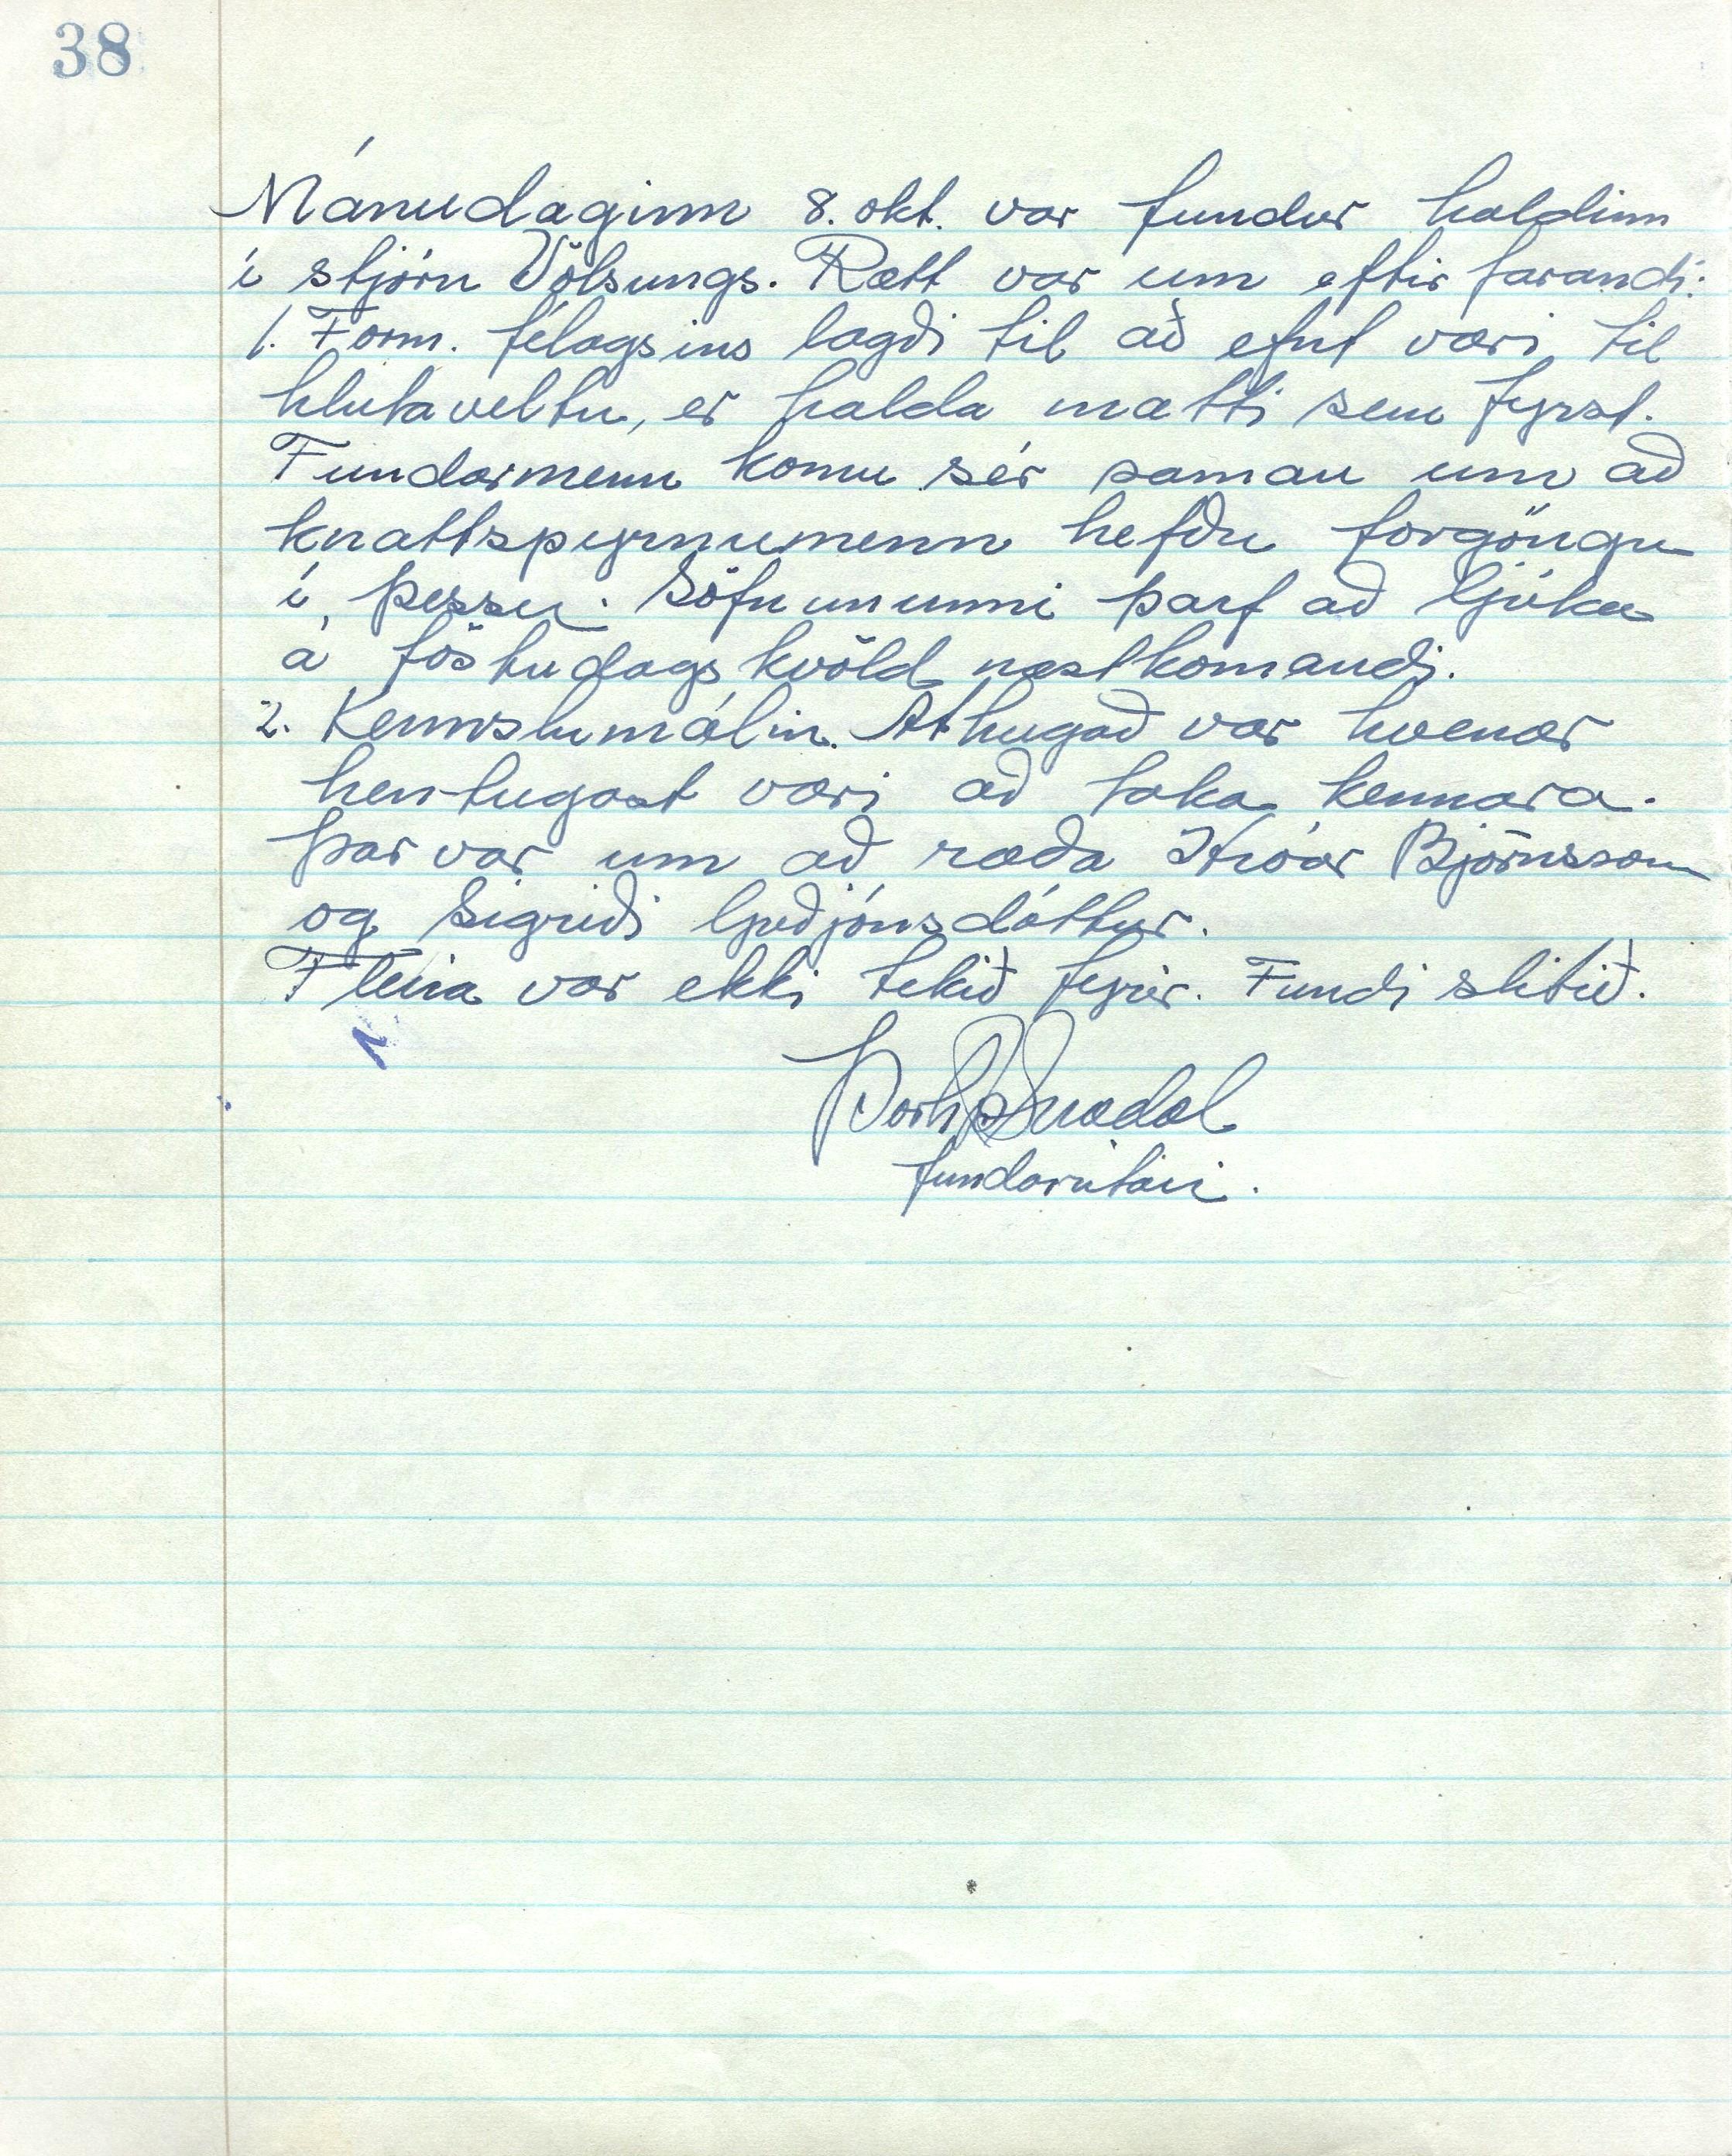 38
Mánudaginn 8. okt. var fundur haldinn
í stjórn Völsungs. Rætt var um eftir farandi:
1. Form. félagsins lagði til að efnt væri til
hlutaveltu, er halda mætti sem fyrst.
Fundarmenn komu sér saman um að
knattspyrnumenn hefðu forgöngu
í þessu. Söfnununni þarf að ljúka
á föstudagskvöld næstkomandi.
2. Kennslumálin. Athugað var hvenær
hentugast væri að taka kennara.
Þar var um að ræða Hróar Björnsson
og Sigríði Guðjónsdóttur.
Fleira var ekki tekið fyrir. Fundi slitið.
Snædal
fundarritari.